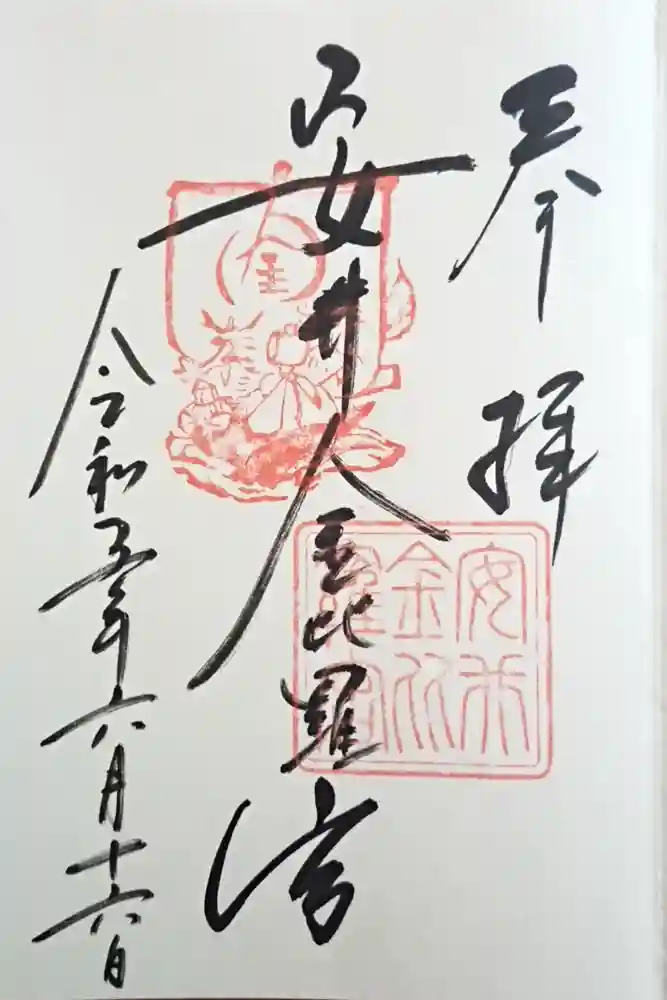 奉拝
安井金比羅宮
令和五年六月十六日
安井
金比
羅宮